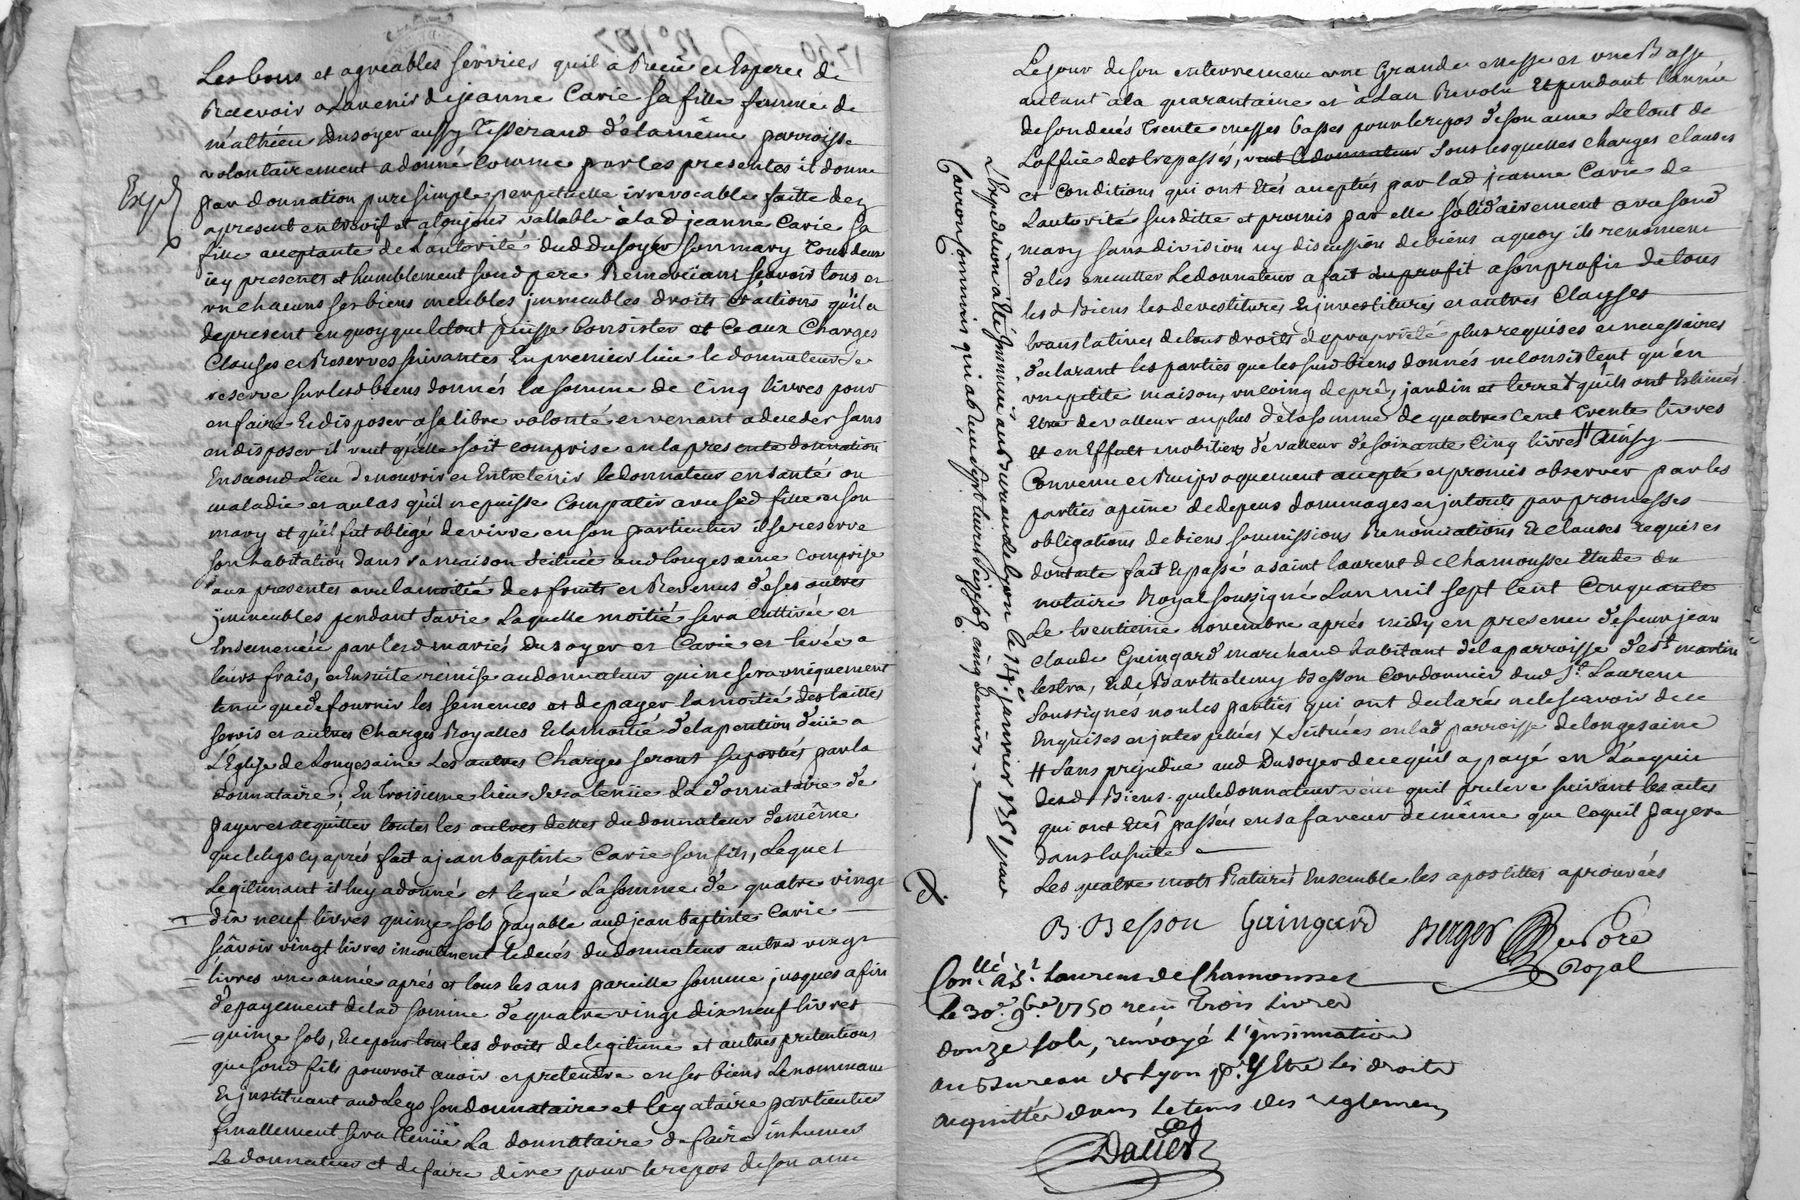 Les bons et agreables services quil a Reçu et Espere de
Recevoir a Lavenir de jeanne Carie sa fille femme de
mathieu Dusoyer aussy Tisserand de la même parroisse
volontairement a donné Comme par les presentes il donne
Exp
par donnation pure simple perpetuelle irrevocable faitte dez
apresent entrevif et atoujour vallable a lad jeanne Carie sa
fille acceptante de l autorité dud Dusoyer son mary Tous deux
icy presents et humblement sond pere Remerciant sçavoir tous et
un chacuns ses biens meubles jmmeubles droits et actions quil a
de present en quoy que le tout puisse Consister et Ce aux Charges
Clauses et Reserves suivantes, En premier lieu le donnateur se
reserve sur lesd biens donnés la somme de Cinq livres pour
en faire Et disposer a sa libre volonté et venant a deceder sans
en disposer il veut qu'elle soit comprise en la presente donnation
En second Lieu de nourrir et Entretenir le donnateur en santé ou
maladie et au cas qu'il ne puisse Compatir avec sad fille et son
mary et qu'il fut obligé de vivre en son particulier il se reserve
son habitation dans sa maison scituée aud longesaine Comprise
aux presentes avec la moitié des fruits et Revenus de ses autres
jmmeubles pendant sa vie Laquelle moitié sera Cultivée et
Ensemencée par lesd mariés Dusoyer et Carie et levée a
leurs frais, et Ensuite remise au donnateur qui ne sera uniquement
tenu que de fournir les semences et de payer la moitié des tailles
servis et autres Charges Royalles Et la moitié de la pention düe a
L'Eglise de Longesaine Les autres Charges seront suportés par la
donnataire ; En Troisieme lieu sera tenüe La donnataire de
payer et acquitter toutes les autres dettes du donnateur de même
que le legs cy aprés fait a jean baptiste Carie son fils, Lequel
Legitimant il luy a donné et legué La somme de quatre vingt
dix neuf livres quinze sols payable aud jean baptiste Carie
sçavoir vingt livres incontinent le decés du donnateur autres vingt
livres une année aprés et tous les ans pareille somme jusques a fin
de payement de lad somme de quatre vingt dix neuf livres
quinze sols, Et ce pour tous les droits de legitime et autres pretentions
que sond fils pourroit avoir et pretendre en ses biens Le nommant
Et jnstituant aud Legs son donnataire et legataire particulier
finallement sera tenüe La donnataire de faire inhumer
Le donnateur et de faire dire pour le repos de son ame
Le jour de son enterrement une Grande messe et une Basse
autant a la quarantaine et a L an Revolu Et pendant L'année
de son decés Trente messes basses pour le repos de son ame Le tout de
L'office des trepassés, veut le donnateur Sous lesquelles charges clauses
et Conditions qui ont Etés acceptés par lad jeanne Carie de
L'autorité susditte et promis par elle solidairement avec sond
mary sans division ny discussion de biens a quoy ils renoncent
de les executter Le donnateur a fait au profit a son profit de tous
lesd Biens les devestitures Et jnvestitures et autres Clauses
translatives de tous droits de proprieté plus requises et necessaires
declarant les parties que les susd biens donnés ne Consistent qu'en
une petite maison, un Coing de pré, jardin et terre X qu'ils ont Estimés
Etre de valleur au plus de la somme de quatre Cent Trente livres
Et en Effets mobiliers de valleur de soixante Cinq livres # Ainsy
Convenu et Reciproquement accepté et promis observer par les
parties a peine de depens dommages et jnterets par promesses
obligations de biens soumissions Renonciations Et Clauses requises
dont acte fait Et passé a saint Laurent de Chamousset Etude du
notaire Royal soussigné L'an mil sept Cent Cinquante
Le trentieme novembre aprés midy en presence de sieur jean
Claude Guingard marchand habitant de la parroisse de st martin
lestra, Et de Barthelemy Besson Cordonnier dud St. Laurent
Soussignes non les parties qui ont declarés ne le sçavoir de ce
Enquises et jnterpellées X scituées en lad parroisse de longesaine
# Sans prejudice aud Dusoyer de ce qu'il a payé en L'acquit
desd Biens que le donnateur veut qu'il preleve suivant les actes
qui ont Etés passés en sa faveur de même que ce qu'il payera
dans la suite
Les quatre mots Raturés Ensemble les apostilles aprouvées
B. Besson Guingard Berger Rore
Royal
Con.llé a St. Laurens de Chamousset
le 30.e 9bre 1750 reçu Trois livres
douze sols, renvoyé l'jnsinuation
au Bureau de Lyon pr. y Etre les droits
acquittés dans le tems des reglemens
Dallier
L'Expedition a été jnsinuée au Bureau de Lyon le 14.e janvier 1751 par
Carron Commis qui a reçu sept livres dix sols cinq deniers